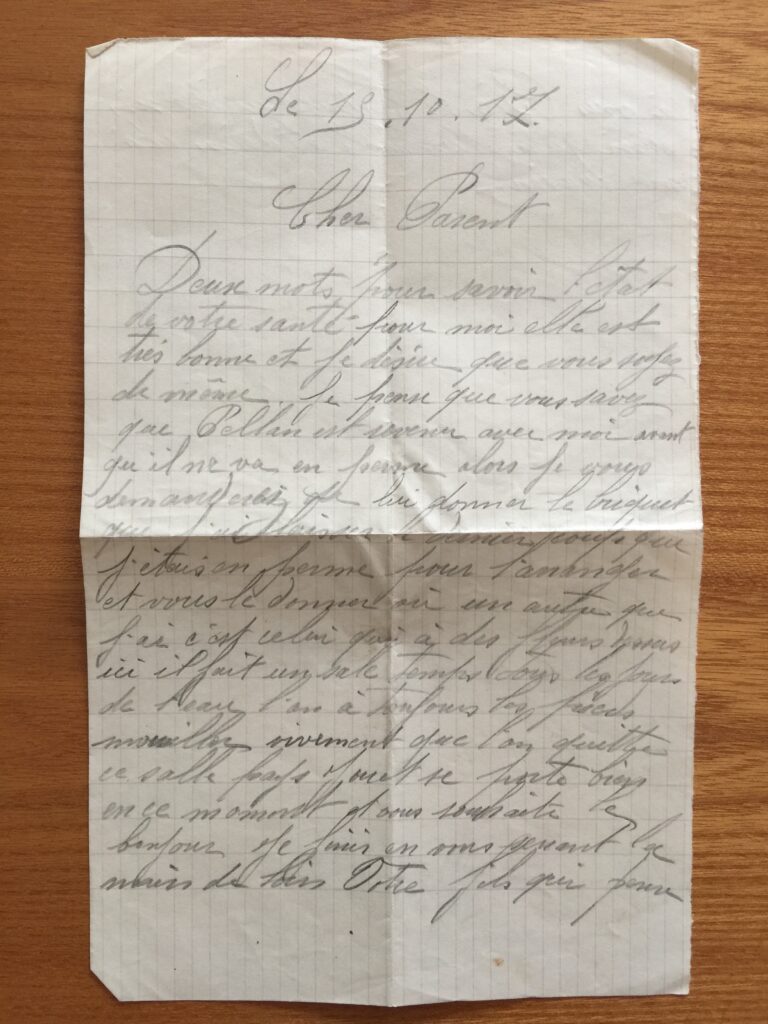 Le 19.10.17.
Cher Parent
Deux mots pour savoir l'état
de votre santé pour moi elle est
très bonne et je désire que vous soyez
de même. Je pense que vous savez
que Pellan est revenu avec moi avant
qu'il ne va en perme alors je vous
demanderais de lui donner le briquet
que j'ai laisser dernier coup que
j'étais en perme pour l'arranger
et vous le donner où un autre que
j'ai c'est celui qui à des fleurs dessus
ici il fait un sale temps tous les jours
de l'eau l'on à toujours les pieds
mouiller vivement que l'on quitte
ce salle pays se porte bien
en ce moment et vous souhaite le
bonjour Je finis en vous serrant la
main de loin Votre fils qui pense